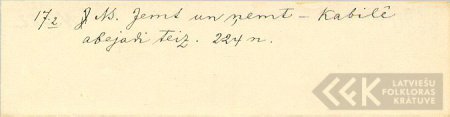 17₂ N.B. Jemt un ņemt – Kabilē
abejādi teiz. 224 n.
LATVIEŠU
FOLKLORAS
KRĀTUVE